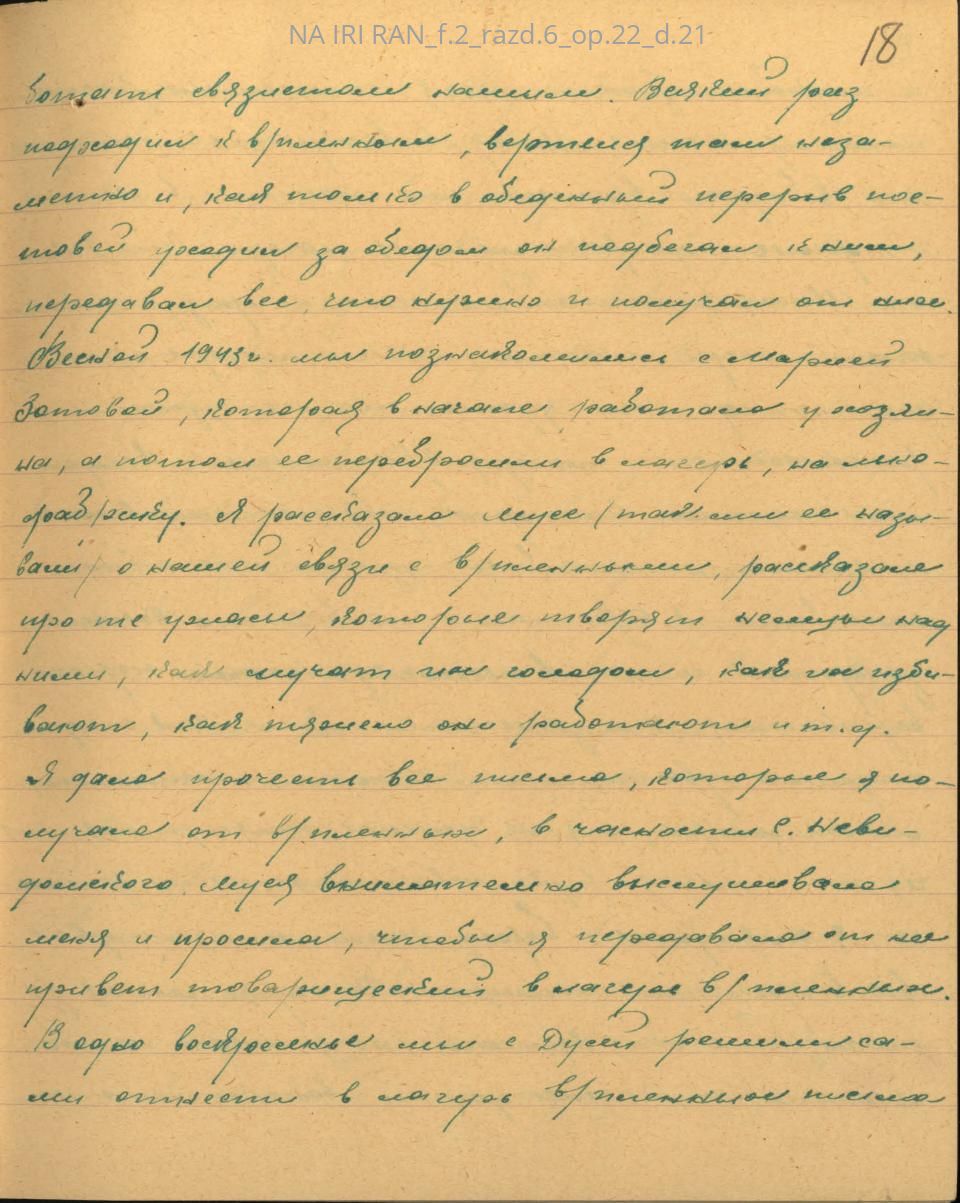 NA IRI RAN_f.2_razd.6_op.22_d.21
18
ботать связистом нашим. Всякий раз
подходил к в/пленным, вертелся там неза-
метно и, как только в обеденный перерыв пос-
товой уходил за обедом он подбегал к ним,
передавал все, что нужно и получал от них.
Весной 1943г. мы познакомились с Марией
Зотовой, которая в начале работала у хозяи-
на, а потом ее перебросили в лагерь, на льно-
фабрику. Я рассказала Мусе /так мы ее назы-
вали/ о нашей связи с в/пленными, рассказала
про те ужасы, которые творят немцы над
ними, как мучат их голодом, как их изби-
вают, как тяжело они работают и т.д.
Я дала прочесть все письма, которые я по-
лучала от в/пленных, в часности С. Неви-
домского. Муся внимательно выслушивала
меня и просила, чтобы я передавала от нее
привет товарищеский в лагерь в/пленных.
В одно воскресенье мы с Дусей решили са-
ми отнести в лагерь в/пленных письма